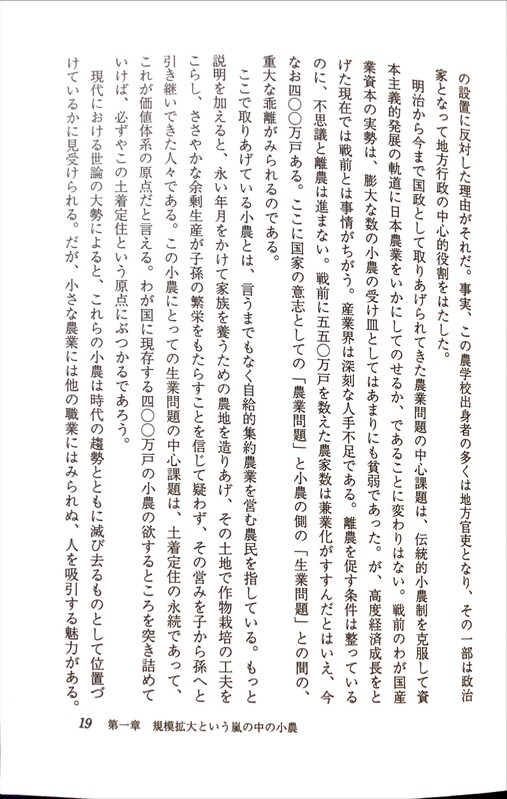 の設置に反対した理由がそれだ。事実、この農学校出身者の多くは地方官吏となり、その一部は政治
家となって地方行政の中心的役割をはたした。
明治から今まで国政として取りあげられてきた農業問題の中心課題は、伝統的小農制を克服して資
本主義的発展の軌道に日本農業をいかにしてのせるか、であることに変わりはない。戦前のわが国産
業資本の実勢は、膨大な数の小農の受け皿としてはあまりにも貧弱であった。が、高度経済成長をと
げた現在では戦前とは事情がちがう。産業界は深刻な人手不足である。離農を促す条件は整っている
のに、不思議と離農は進まない。戦前に五五〇万戸を数えた農家数は兼業化がすすんだとはいえ、今
なお四〇〇万戸ある。ここに国家の意志としての「農業問題」と小農の側の「生業問題」との間の、
重大な乖離がみられるのである。
ここで取りあげている小農とは、言うまでもなく自給的集約農業を営む農民を指している。もっと
説明を加えると、永い年月をかけて家族を養うための農地を造りあげ、その土地で作物栽培の工夫を
こらし、ささやかな余剰生産が子孫の繁栄をもたらすことを信じて疑わず、その営みを子から孫へと
引き継いできた人々である。この小農にとっての生業問題の中心課題は、土着定住の永続であって、
これが価値体系の原点だと言える。わが国に現存する四〇〇万戸の小農の欲するところを突き詰めて
いけば、必ずやこの土着定住という原点にぶつかるであろう。
現代における世論の大勢によると、これらの小農は時代の趨勢とともに滅び去るものとして位置づ
けているかに見受けられる。だが、小さな農業には他の職業にはみられぬ、人を吸引する魅力がある。
19 第一章 規模拡大という嵐の中の小農